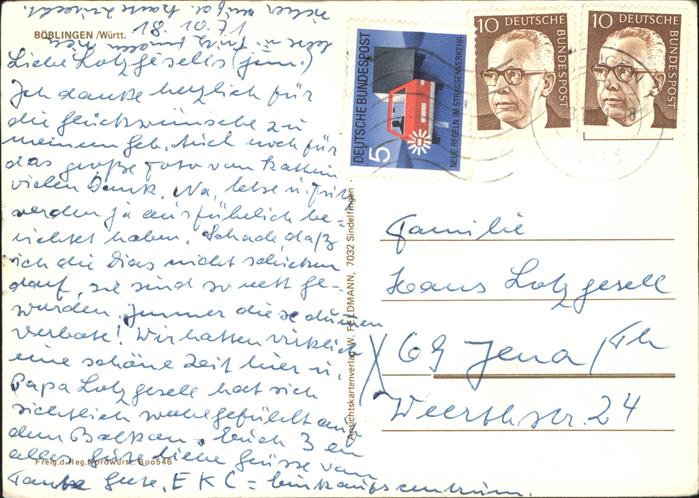 BÖBLINGEN /Württ.
18.10.71
Liebe Lotzgesells (jun.)
Ich danke herzlich für
die Glückwünsche zu
meinem Geb. Auch noch für
das große Foto von
vielen Dank. Na, u.
werden ja ausführlich be-
richtet haben. Schade, daß
ich die Dias nicht schicken
darf, sie sind so nett ge-
worden. Immer diese dummen
Verbote! Wir hatten wirklich
eine schöne Zeit hier u.
Papa Lotzgesell hat sich
sichtlich wohlgefühlt auf
dem Balkon. Euch 3 en
alles Gute, liebe Grüsse von
Tante EKC = Einkaufszentrum.
Freig.d.Reg.Nordwürtt.
Ansichtskartenverlag W. FELDMANN, 7032 Sindelfingen
5 DEUTSCHE BUNDESPOST
NEUE REGELN IM STRASSENVERKEHR
10 DEUTSCHE BUNDESPOST
10 DEUTSCHE BUNDESPOST
Familie
Hans Lotzgesell
X 69 Jena/Th
Weerthstr. 24